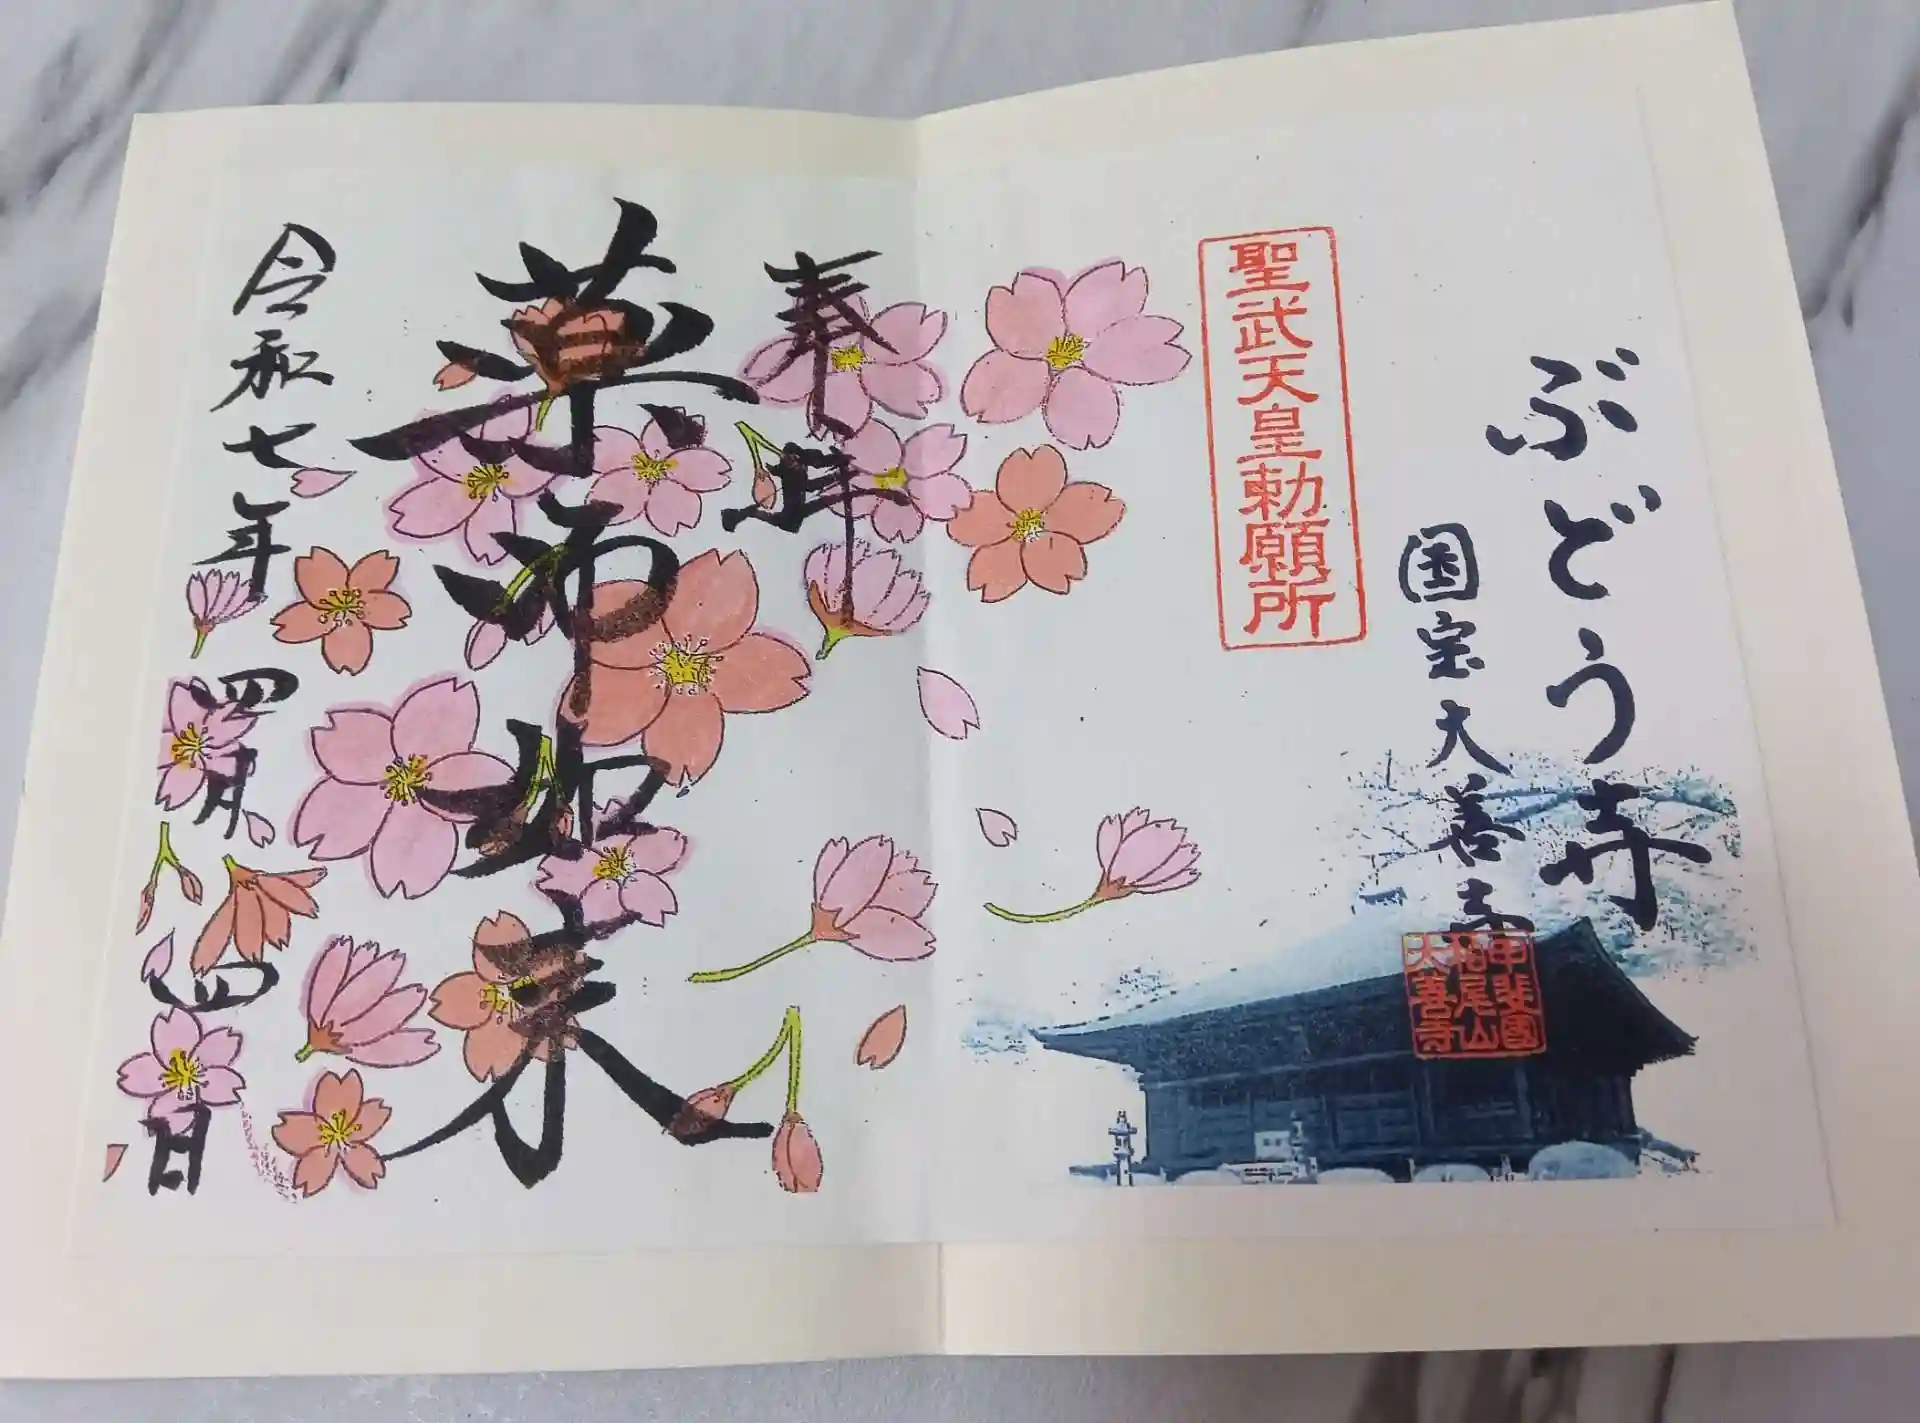 ぶどう寺
国宝大善寺
甲斐國
柏尾山
大善寺
聖武天皇勅願所
奉拝
薬師如来
令和七年四月四日